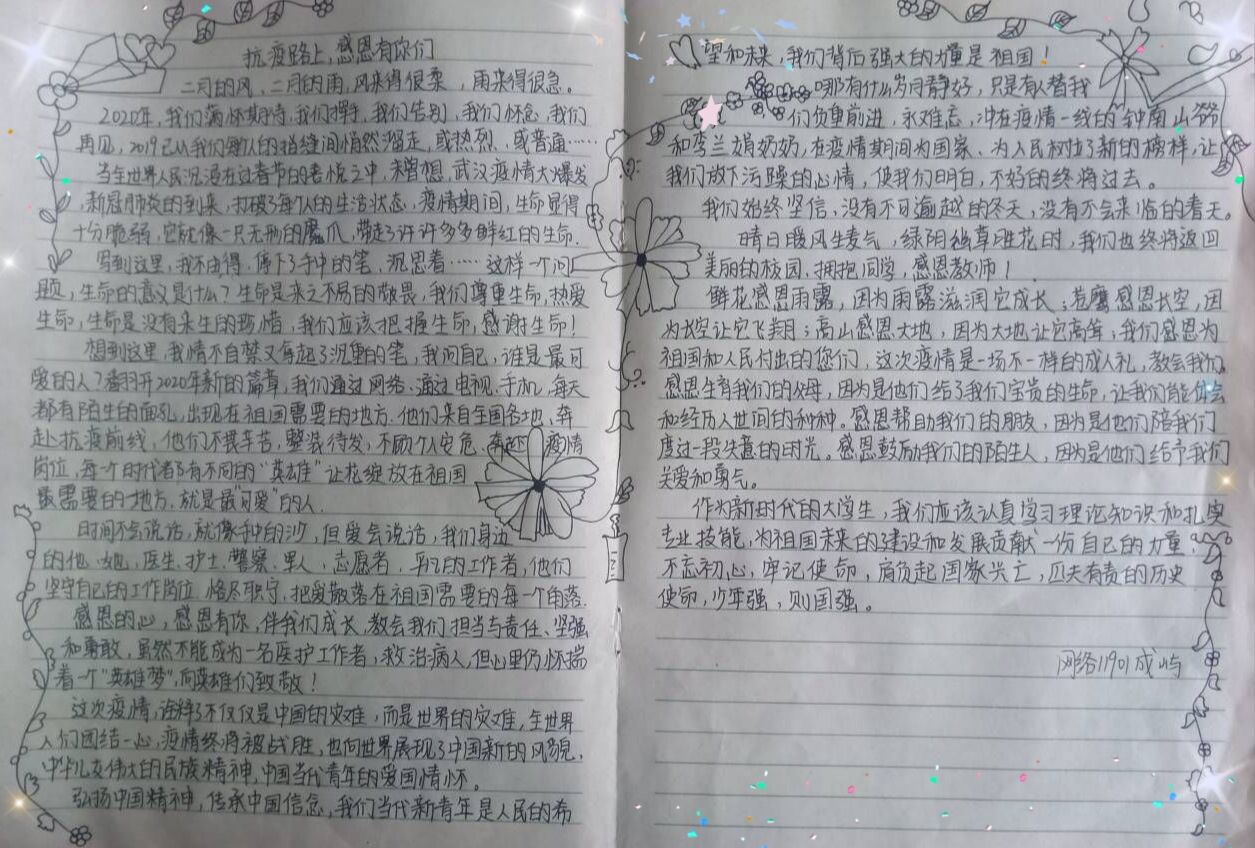 抗疫路上,感恩有你们
二月的风、二月的雨,风来得很柔,雨来得很急。
2020年,我们满怀期待,我们挥手,我们告别,我们怀念,我们
再见,2019已从我们每个人的指缝间悄然溜走,或热烈、或普通……
当全世界人民沉浸在过春节的喜悦之中,未曾想,武汉疫情大爆发
,新冠肺炎的到来,打破了每个人的生活状态,疫情期间,生命显得
十分脆弱,它就像一只无形的魔爪,带走了许许多多鲜红的生命.
写到这里,我不由得,停下了手中的笔,沉思着……这样一个问
题,生命的意义是什么?生命是来之不易的敬畏,我们尊重生命,热爱
生命,生命是没有来生的珍惜,我们应该把握生命,感谢生命!
想到这里,我情不自禁又拿起了沉重的笔,我问自己,谁是最可
爱的人?翻开2020年新的篇章,我们通过网络、通过电视、手机,每天
都有陌生的面孔,出现在祖国需要的地方.他们来自全国各地、奔
赴抗疫前线,他们不畏辛苦,整装待发,不顾个人安危,奔赴疫情
岗位,每一个时代都有不同的“英雄”让花绽放在祖国
最需要的地方,就是最“可爱”的人.
时间不会说话,就像手中的沙,但爱会说话,我们身边
的他、她,医生、护士、警察、军人、志愿者、平凡的工作者,他们
坚守自己的工作岗位,恪尽职守,把爱散落在祖国需要的每一个角落.
感恩的心,感恩有你,伴我们成长,教会我们担当与责任、坚强
和勇敢,虽然不能成为一名医护工作者,救治病人,但心里仍怀揣
着一个“英雄梦”,向英雄们致敬!
这次疫情,诠释了不仅仅是中国的灾难,而是世界的灾难,全世界
人们团结一心,疫情终将被战胜,也向世界展现了中国新的风貌,
中华儿女伟大的民族精神,中国当代青年的爱国情怀。
弘扬中国精神,传承中国信念,我们当代新青年是人民的希
望和未来,我们背后强大的力量是祖国!
哪有什么岁月静好,只是有人替我
们负重前进,永难忘,冲在疫情一线的钟南山爷爷
和李兰娟奶奶,在疫情期间为国家、为人民树立了新的榜样,让
我们放下污躁的心情,使我们明白,不好的终将过去。
我们始终坚信,没有不可逾越的冬天,没有不会来临的春天。
晴日暖风生麦气,绿阴幽草胜花时,我们也终将返回
美丽的校园、拥抱同学,感恩教师!
鲜花感恩雨露,因为雨露滋润它成长;苍鹰感恩长空,因
为长空让它飞翔;高山感恩大地,因为大地让它高耸,我们感恩为
祖国和人民付出的您们,这次疫情是一场不一样的成人礼,教会我们
感恩生育我们的父母,因为是他们给了我们宝贵的生命,让我们能体会
和经历人世间的种种。感恩帮助我们的朋友,因为是他们陪我们
度过一段失意的时光,感恩鼓励我们的陌生人,因为是他们给予我们
关爱和勇气。
作为新时代的大学生,我们应该认真学习理论知识和扎实
专业技能,为祖国未来的建设和发展贡献一份自己的力量,
不忘初心,牢记使命,肩负起国家兴亡,匹夫有责的历史
使命,少年强,则国强。
网络11901成屿